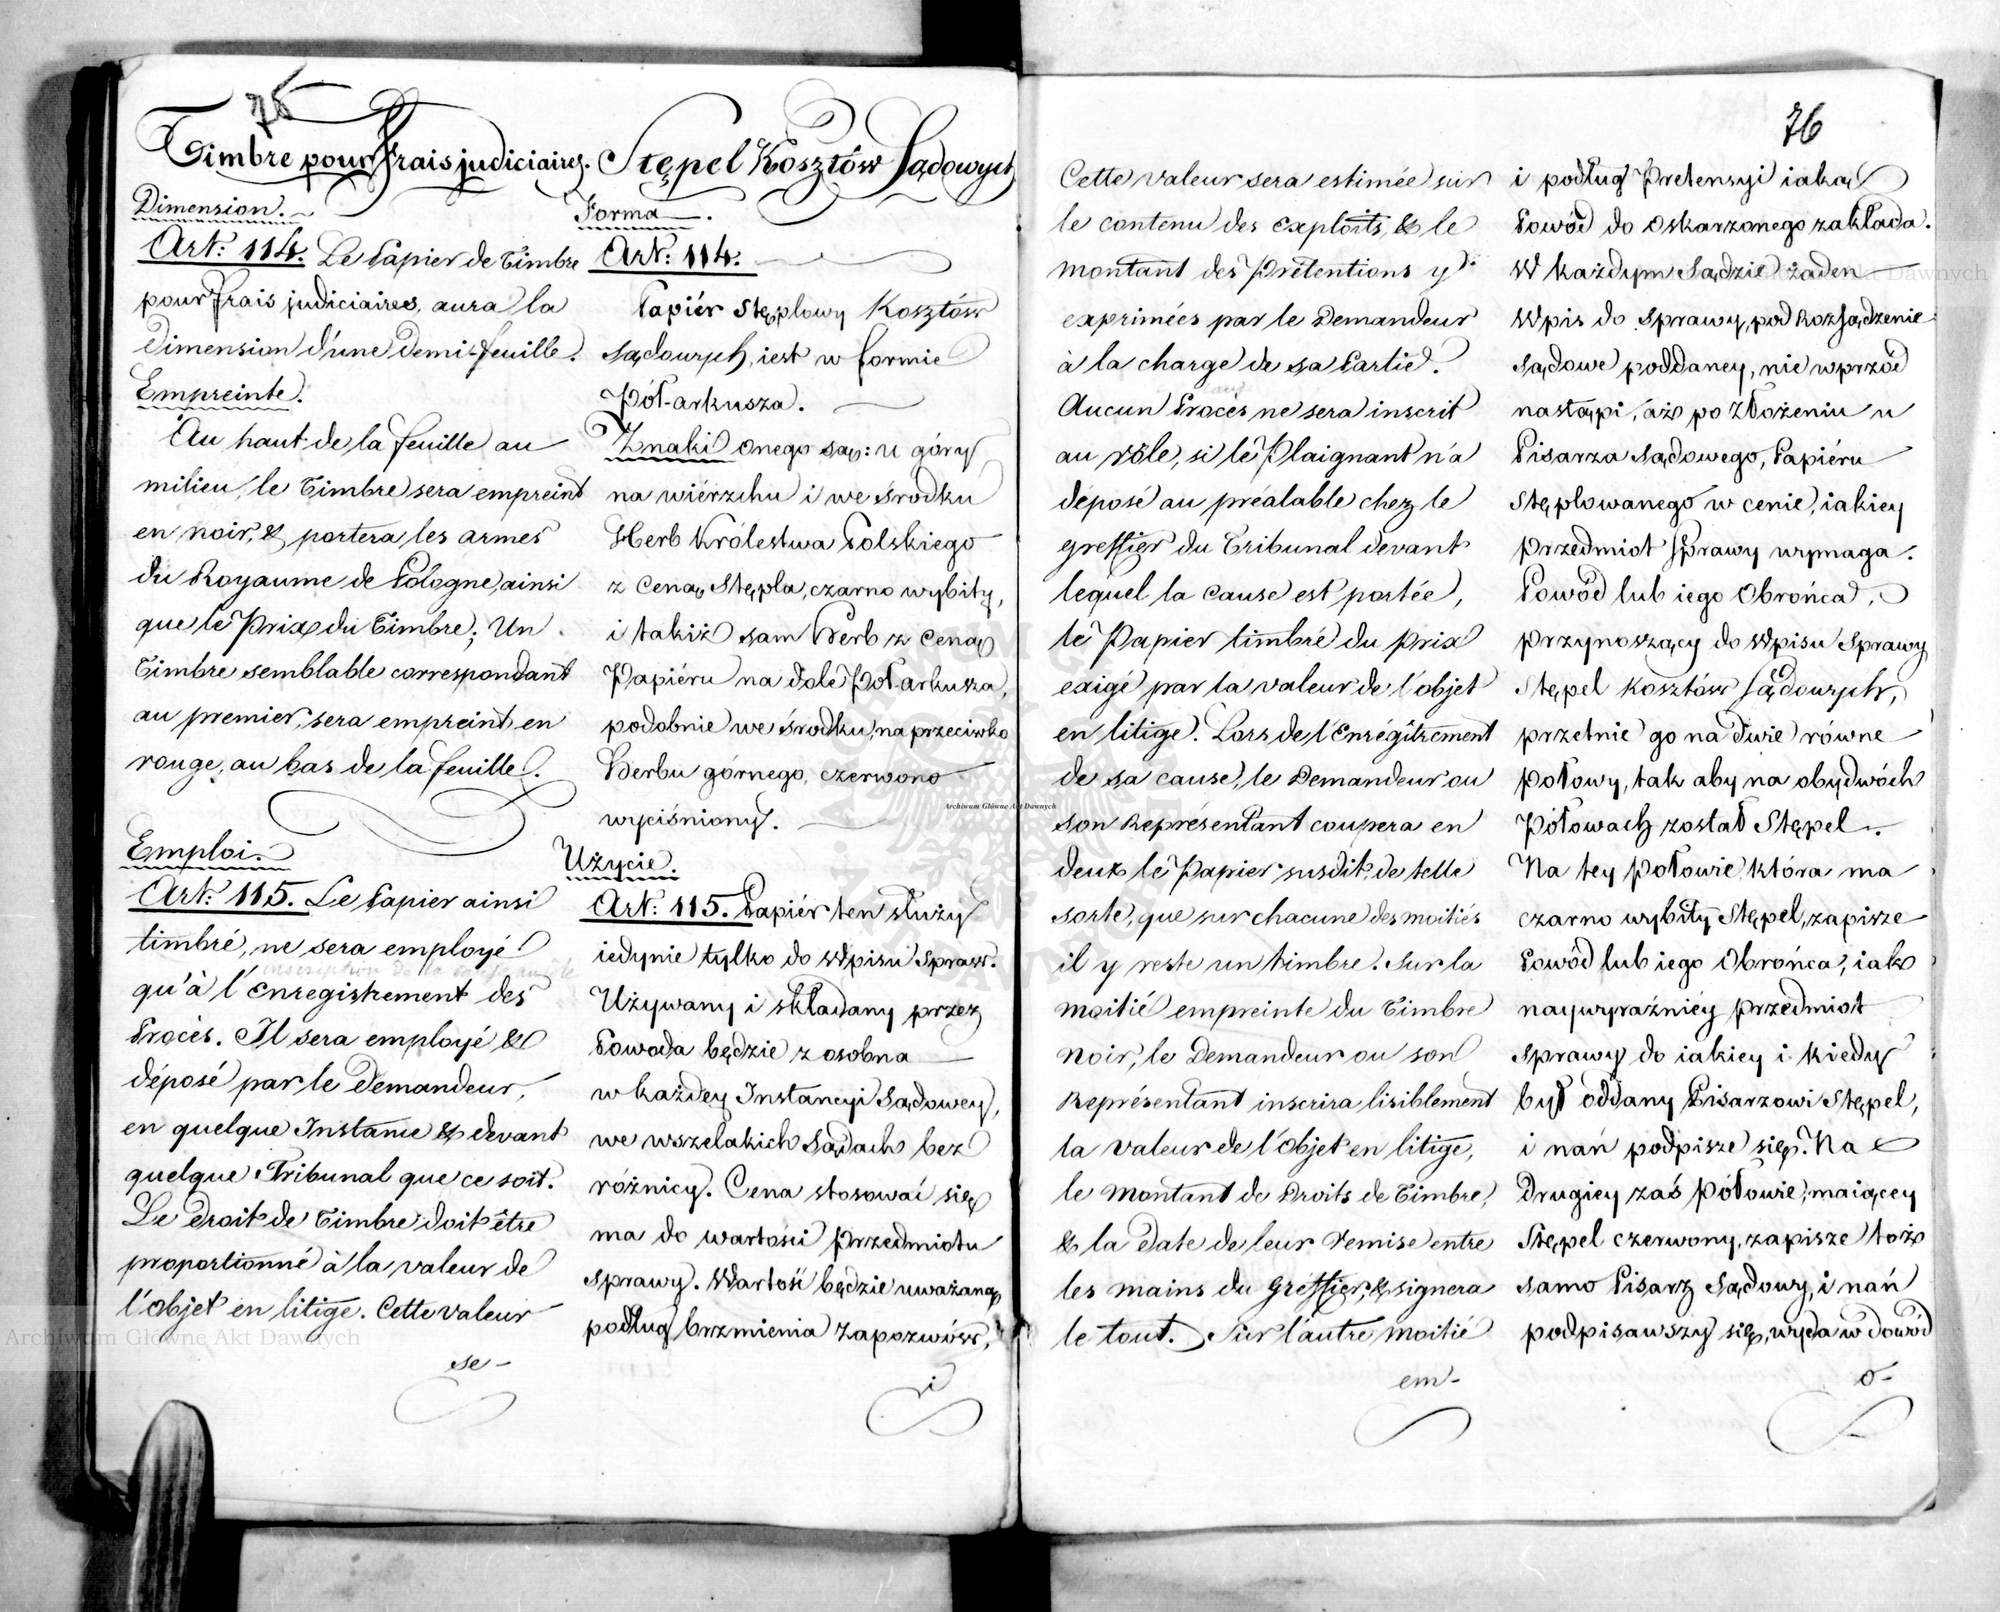 75
Timbre pour frais judiciaires.
Dimension.
Art: 114. Le Papier de Timbre
pour frais judiciaires, aura la
Dimension d'une Demi-feuille.
Empreinte.
Au haut de la feuille au
milieu, le Timbre sera empreint
en noir, & portera les armes
du Royaume de Pologne, ainsi
que le Prix du Timbre; Un
Timbre semblable correspondant
au premier, sera empreint en
rouge, au bas de la feuille.
Emploi.
Art: 115. Le Papier ainsi
timbré, ne sera employé
inscription de la cause au rôle
qu'à l'Enregistrement des
Procès. Il sera employé &
déposé par le Demandeur,
en quelque Instance & devant
quelque Tribunal que ce soit.
Le droit de Timbre doit être
proportionné à la valeur de
l'objet en litige. Cette valeur
se-
Stępel Kosztów Sądowych
Forma.
Art: 114.
Papiér Stęplowy Kosztów
Sądowych, iest w formie
Pół-arkusza.
Znaki onego są: u góry
na wiérzchu i we środku
Herb Królestwa Polskiego
z Ceną Stępla, czarno wybity,
i takiż sam Herb z Ceną
Papiéru na dole Pół-arkusza,
podobnie we środku, naprzeciwko
Herbu górnego, czerwono
wyciśniony.
Użycie.
Art: 115. Papiér ten służy
iedynie tylko do Wpisu Spraw.
Używany i składany przez
Powoda będzie z osobna
w każdey Instancyi Sądowey,
we wszelakich Sądach bez
różnicy. Cena stosować się
ma do wartości Przedmiotu
Sprawy. Wartość będzie uważaną
podług brzmienia Zapozwów,
i
76
Cette valeur sera estimée sur
le contenu des exploits, & le
montant des Prétentions y
exprimées par le Demandeur
à la charge de sa Partie.
Aucun Procès ne sera inscrit
au rôle, si le Plaignant n'a
déposé au préalable chez le
greffier du Tribunal devant
lequel la Cause est portée,
le Papier timbré du prix
exigé par la valeur de l'objet
en litige. Lors de l'Enrégîtrement
de sa cause, le Demandeur ou
son Représentant coupera en
deux le Papier susdit, de telle
sorte, que sur chacune des moitiés
il y reste un timbre. Sur la
moitié empreinte du Timbre
noir, le Demandeur ou son
Représentant inscrira lisiblement
la valeur de l'Objet en litige,
le Montant de Droits de Timbre,
& la Date de leur remise entre
les mains du Greffier, & signera
le tout. Sur l'autre moitié
em-
i podług Pretensyi iaką
Powód do Oskarzonego zakłada.
W każdym Sądzie żaden
Wpis do Sprawy, pod Rozsądzenie
Sądowe poddaney, nie wprzód
nastąpi, aż po złożeniu u
Pisarza Sądowego, Papiéru
Stęplowanego w cenie, iakiey
Przedmiot Sprawy wymaga.
Powód lub iego Obrońca,
przynoszący do Wpisu Sprawy
Stępel Kosztów Sądowych,
przetnie go na dwie równe
połowy, tak aby na obydwóch
Półowach został Stępel.
Na tey połowie, która ma
czarno wybity Stępel, zapisze
Powód lub iego Obrońca, iak
naywyraźniéy Przedmiot
Sprawy do iakiey i kiedy
był oddany Pisarzowi Stępel,
i nań podpisze się. Na
Drugiey zaś Półowie, maiącey
Stępel czerwony, zapisze toż
samo Pisarz Sądowy, i nań
podpisawszy się, wyda w dowód
o-
Archiwum Główne Akt Dawnych
Archiwum Główne Akt Dawnych